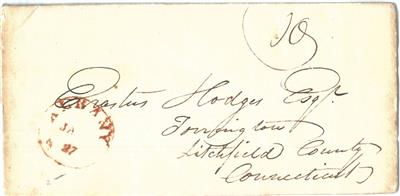 10
Erastus Hodges Esqr.
ALBANY
JA
27
Torrington
Litchfield County
Connecticut